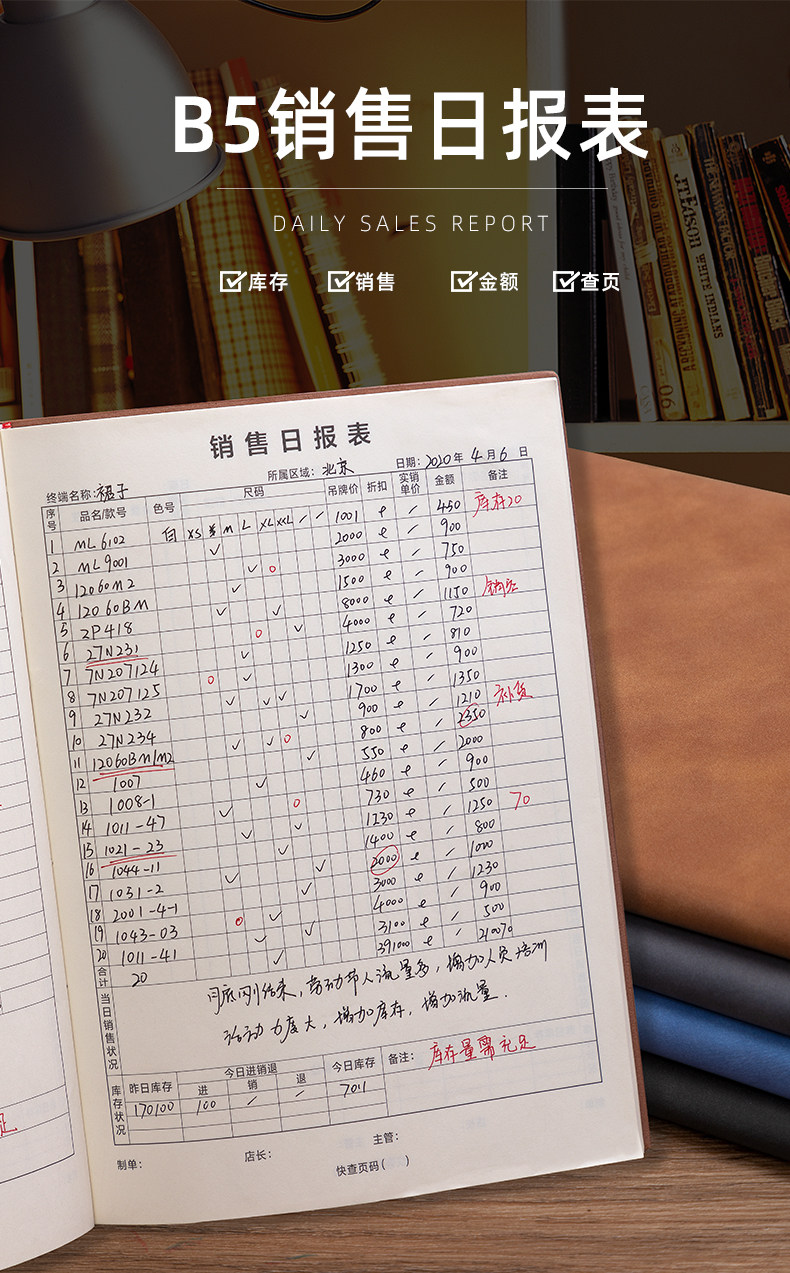 B5销售日报表
DAILY SALES REPORT
库存 销售 金额 查页
JTEASOR WHITE INDIANS
销售日报表
终端名称: 裙子 所属区域: 北京 日期: 2020年4月6日
序号 品名/款号 色号 尺码 吊牌价 折扣 实销单价 金额 备注
白 XS S M L XL XXL / /
1 ML6102 1001 / 450 库存20
2 ML9001 2000 / 900
3 12060M2 3000 / 750
4 12060BM 1500 / 900
5 2P418 8000 / 1150
6 27N231 4000 / 720
7 7N207124 1250 / 810
8 7N207125 1300 / 900
9 27N232 1700 / 1350
10 27N234 900 / 1210 补货
11 12060BM/M2 800 / 2350
12 1007 550 / 2000
13 1008-1 460 / 900
14 1011-47 730 / 500
15 1021-23 1230 / 1250 70
16 1044-11 1400 / 800
17 1031-2 2000 / 1000
18 2001-4-1 3000 / 1230
19 1043-03 4000 / 900
20 1011-41 3100 / 500
合计 20 391000 / 210070
当日销售状况
结束，劳动节人流量多，增加人员培训
活动力度大，增加库存，增加流量.
库存状况 昨日库存 今日进销退 今日库存 备注: 库存量需充足
进 销 退
170100 100 / / 7011
制单: 店长: 主管:
快查页码( )